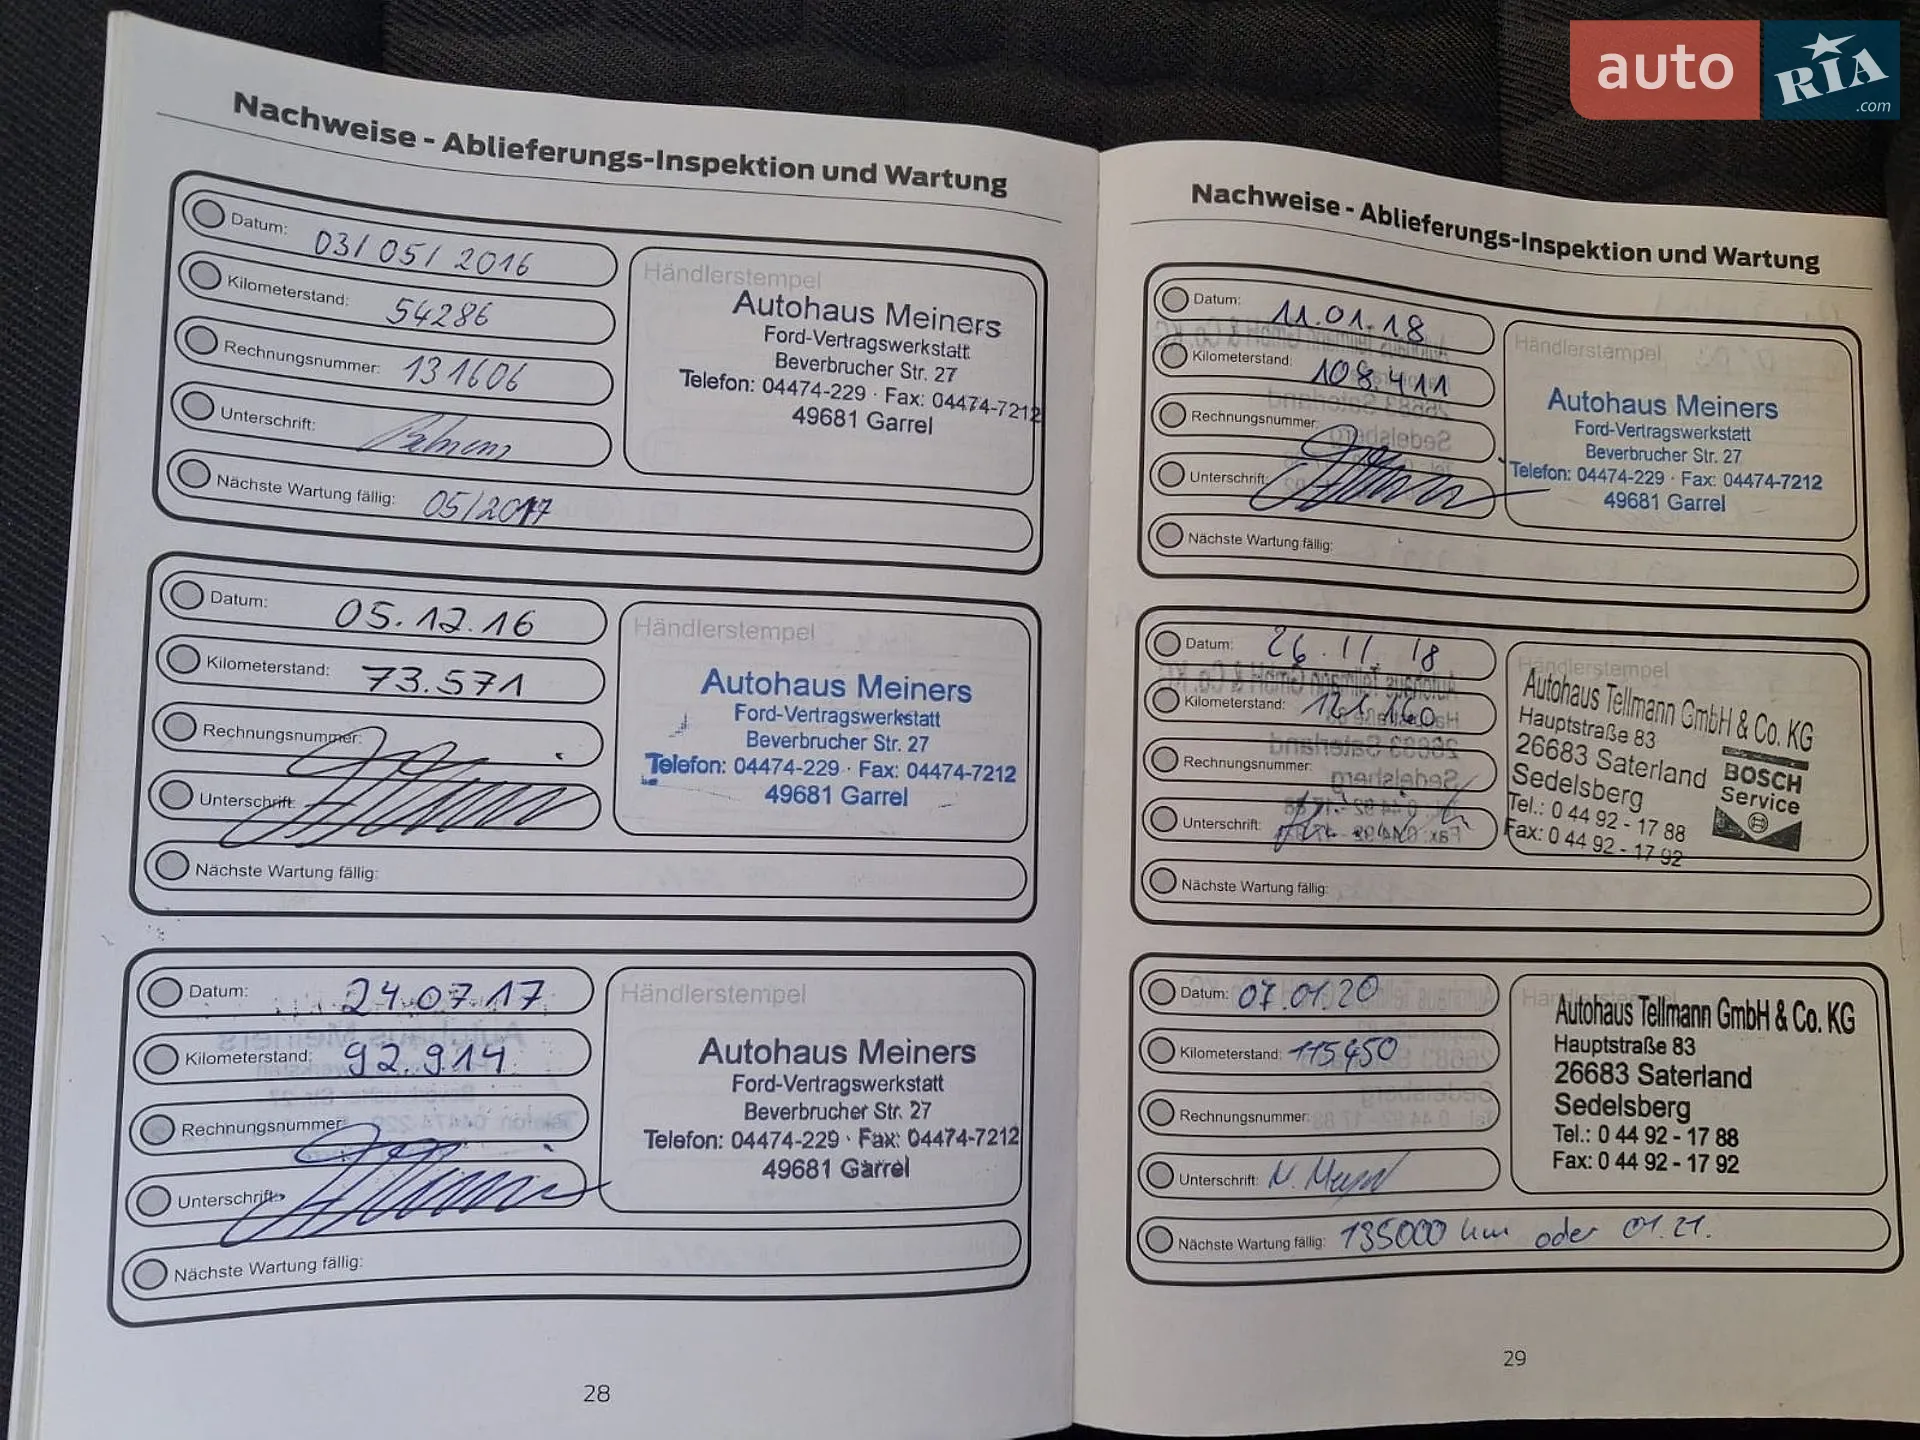 auto RIA .com
Nachweise - Ablieferungs-Inspektion und Wartung
Datum: 03/05/2016
Kilometerstand: 54286
Rechnungsnummer: 131606
Unterschrift:
Nächste Wartung fällig: 05/2017
Händlerstempel
Autohaus Meiners
Ford-Vertragswerkstatt
Beverbrucher Str. 27
Telefon: 04474-229 · Fax: 04474-7212
49681 Garrel
Datum: 05.12.16
Kilometerstand: 73.571
Rechnungsnummer:
Unterschrift:
Nächste Wartung fällig:
Händlerstempel
Autohaus Meiners
Ford-Vertragswerkstatt
Beverbrucher Str. 27
Telefon: 04474-229 · Fax: 04474-7212
49681 Garrel
Datum: 24.07.17
Kilometerstand: 92.914
Rechnungsnummer:
Unterschrift:
Nächste Wartung fällig:
Händlerstempel
Autohaus Meiners
Ford-Vertragswerkstatt
Beverbrucher Str. 27
Telefon: 04474-229 · Fax: 04474-7212
49681 Garrel
28
Nachweise - Ablieferungs-Inspektion und Wartung
Datum: 11.01.18
Kilometerstand: 108.411
Rechnungsnummer:
Unterschrift:
Nächste Wartung fällig:
Händlerstempel
Autohaus Meiners
Ford-Vertragswerkstatt
Beverbrucher Str. 27
Telefon: 04474-229 · Fax: 04474-7212
49681 Garrel
Datum: 26.11.18
Kilometerstand:
Rechnungsnummer:
Unterschrift:
Nächste Wartung fällig:
Händlerstempel
Autohaus Tellmann GmbH & Co. KG
Hauptstraße 83
26683 Saterland
Sedelsberg
Tel.: 0 44 92 - 17 88
Fax: 0 44 92 - 17 92
BOSCH
Service
Datum: 07.01.20
Kilometerstand: 115450
Rechnungsnummer:
Unterschrift:
Nächste Wartung fällig: 135000 km oder 01.21.
Autohaus Tellmann GmbH & Co. KG
Hauptstraße 83
26683 Saterland
Sedelsberg
Tel.: 0 44 92 - 17 88
Fax: 0 44 92 - 17 92
29